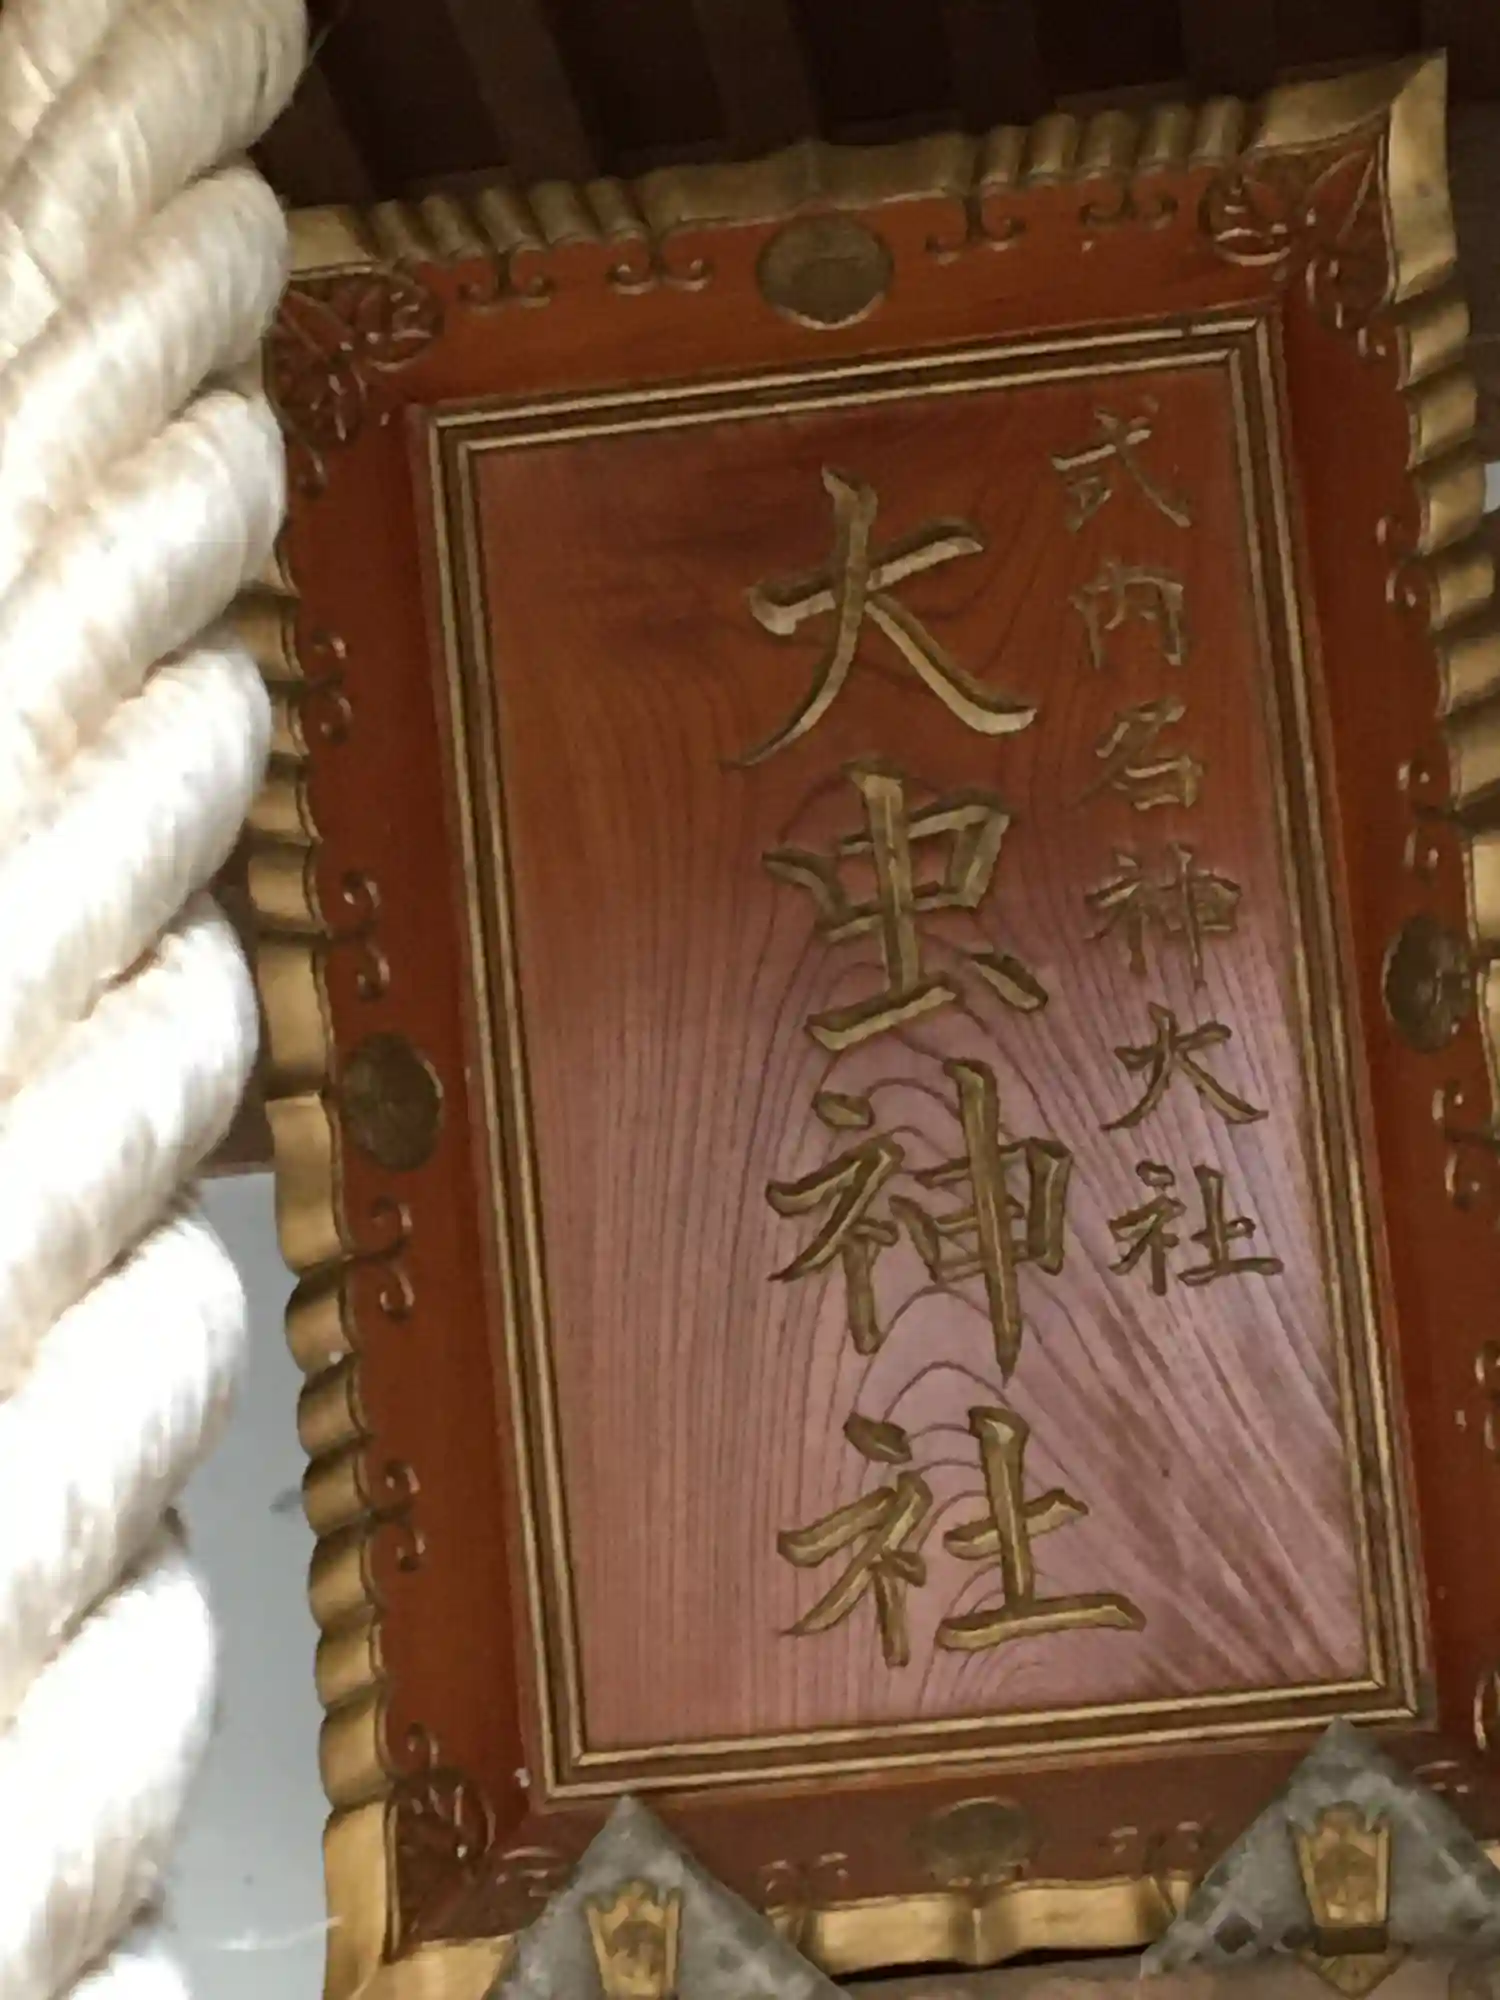 式内名神大社
大虫神社